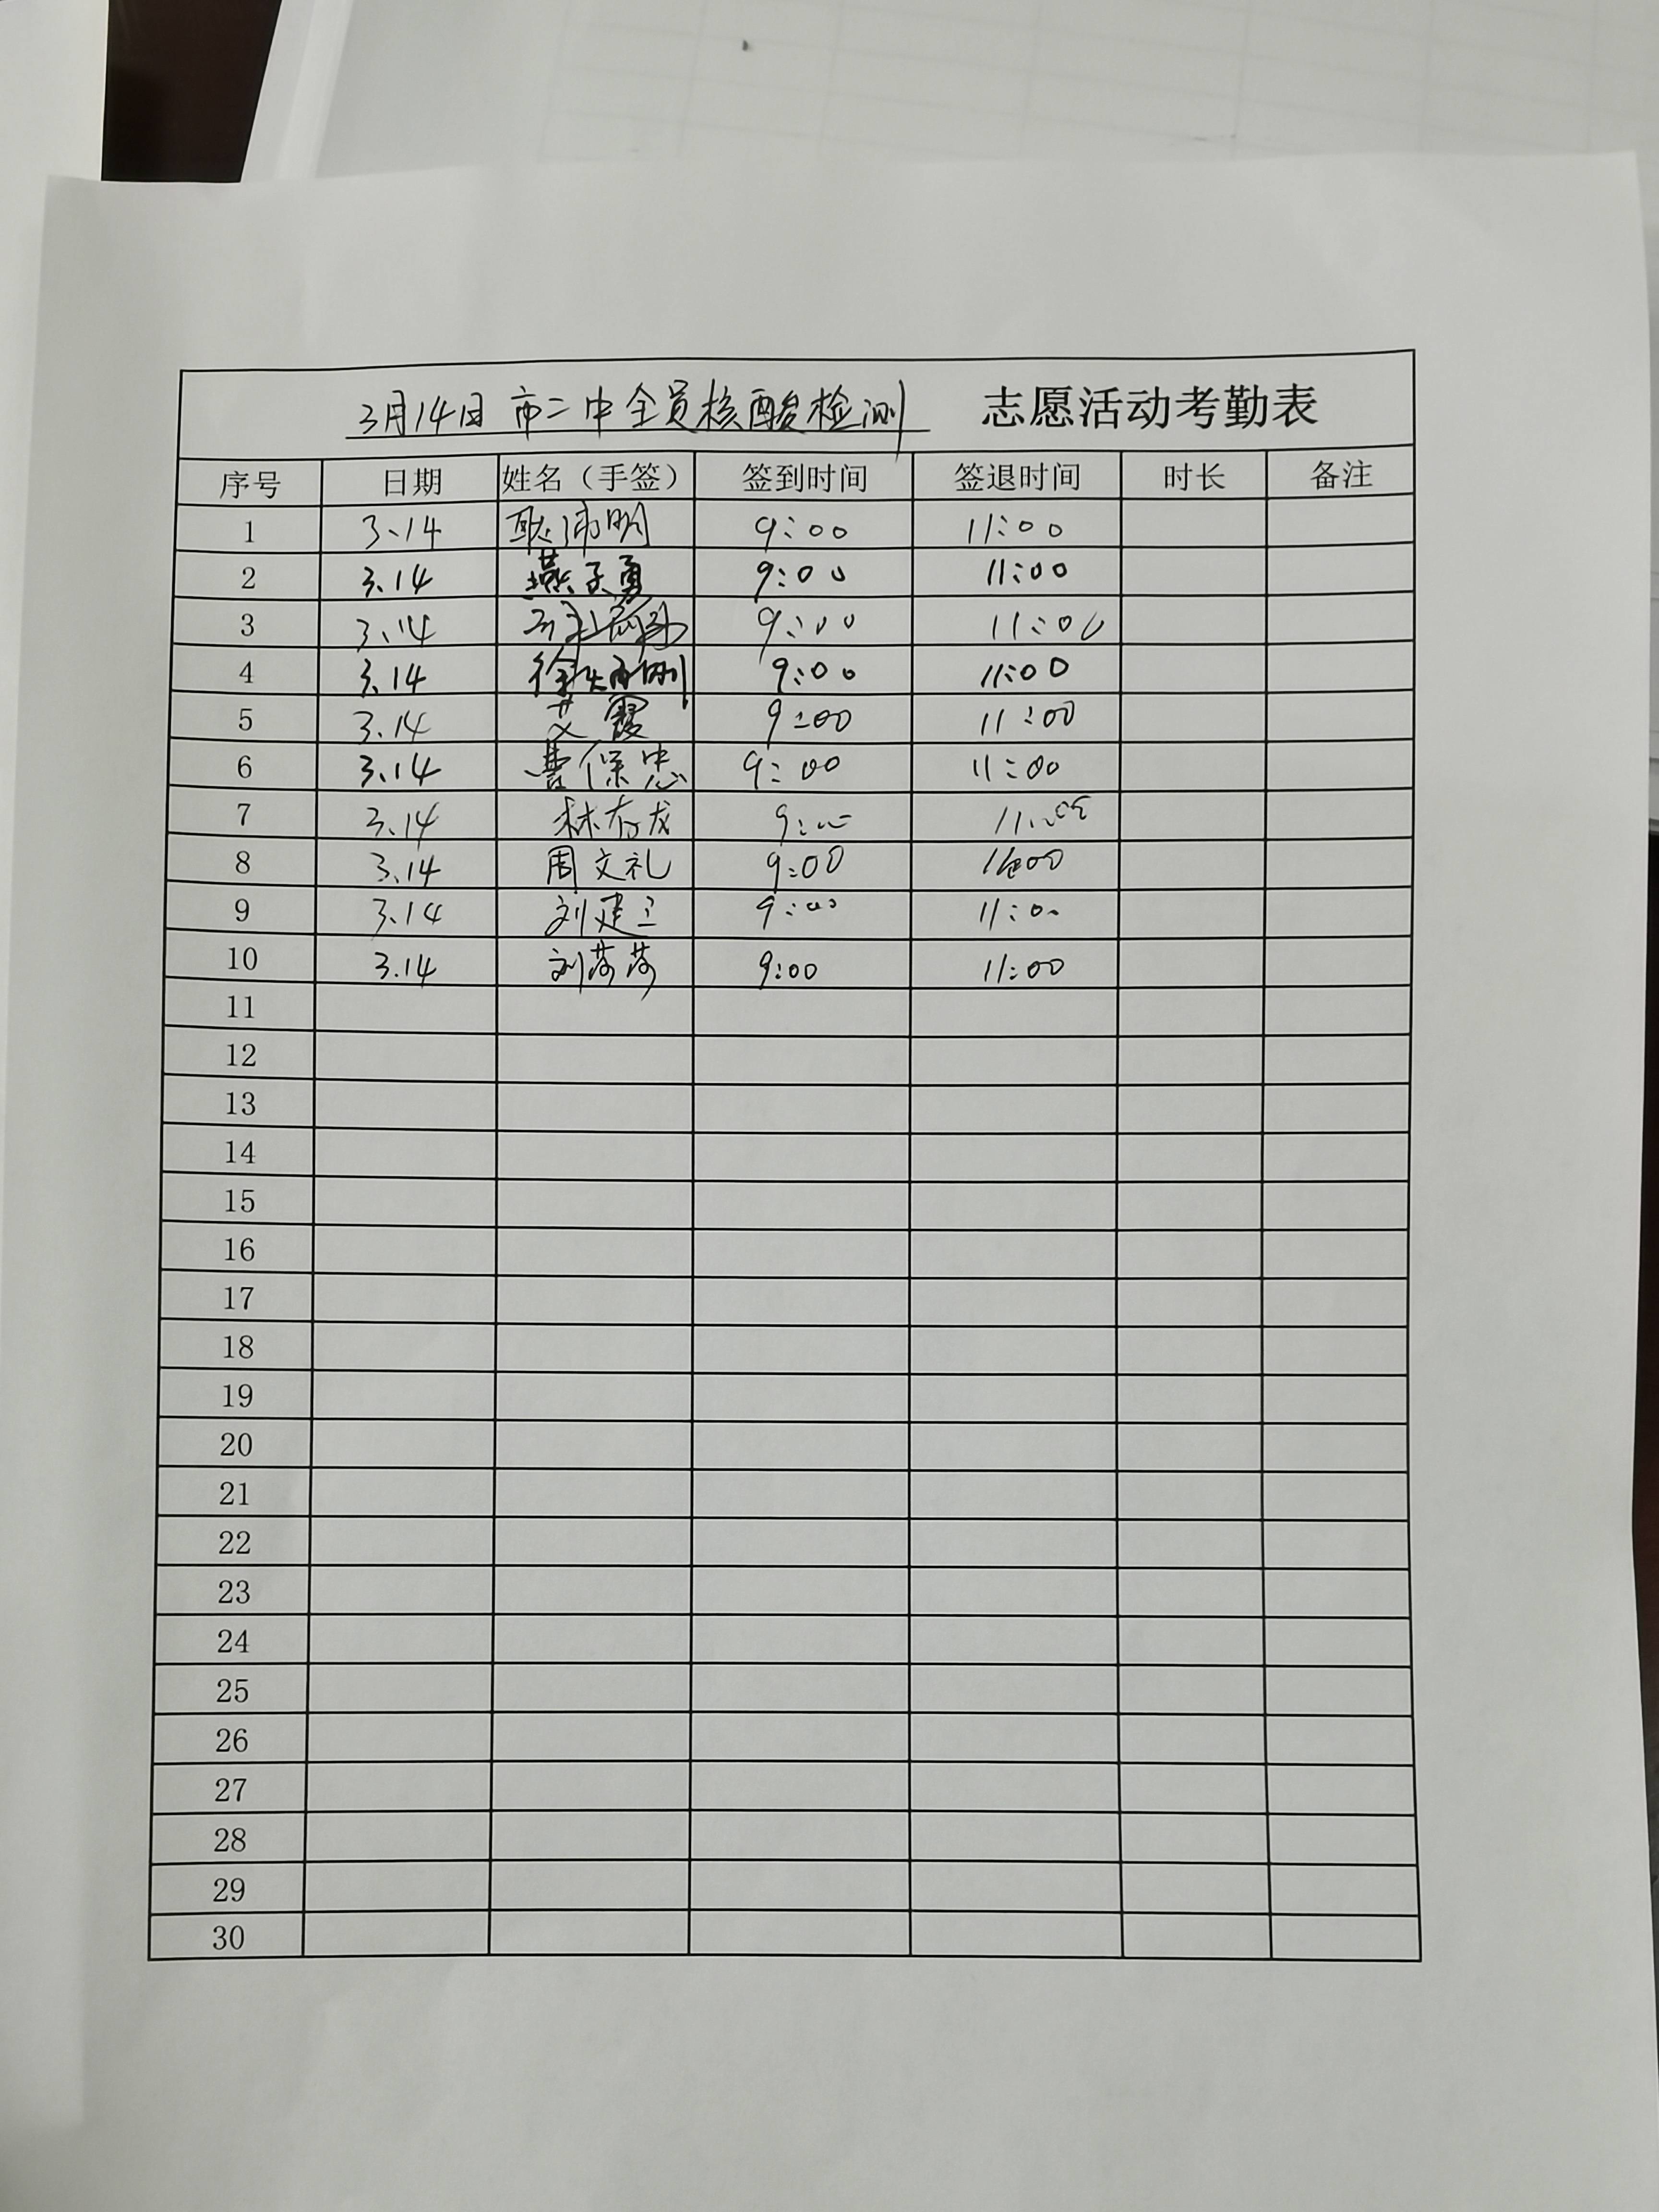 3月14日 市二中全员核酸检测 志愿活动考勤表
序号 日期 姓名（手签） 签到时间 签退时间 时长 备注
1 3.14 9:00 11:00
2 3.14 燕子勇 9:00 11:00
3 3.14 9:00 11:00
4 3.14 9:00 11:00
5 3.14 艾霞 9:00 11:00
6 3.14 曹保忠 9:00 11:00
7 3.14 林存龙 9:00 11:00
8 3.14 周文礼 9:00 11:00
9 3.14 刘建立 9:00 11:00
10 3.14 刘莎莎 9:00 11:00
11
12
13
14
15
16
17
18
19
20
21
22
23
24
25
26
27
28
29
30